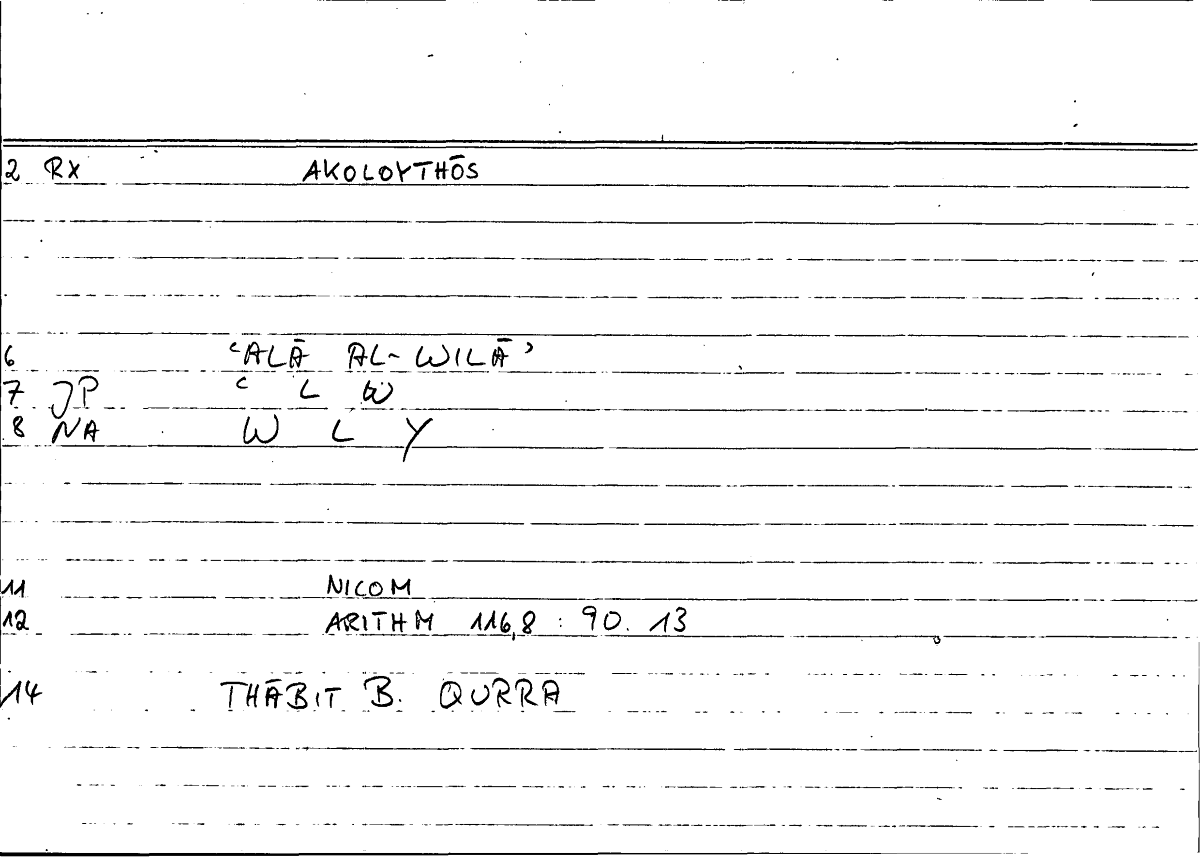 2 RX AKOLOYTHŌS
6 ʿALĀ AL-WILĀʾ
7 JP ʿ L W
8 NA W L Y
11 NICOM
12 ARITHM 116,8 : 90. 13
14 THĀBIT B. QURRA